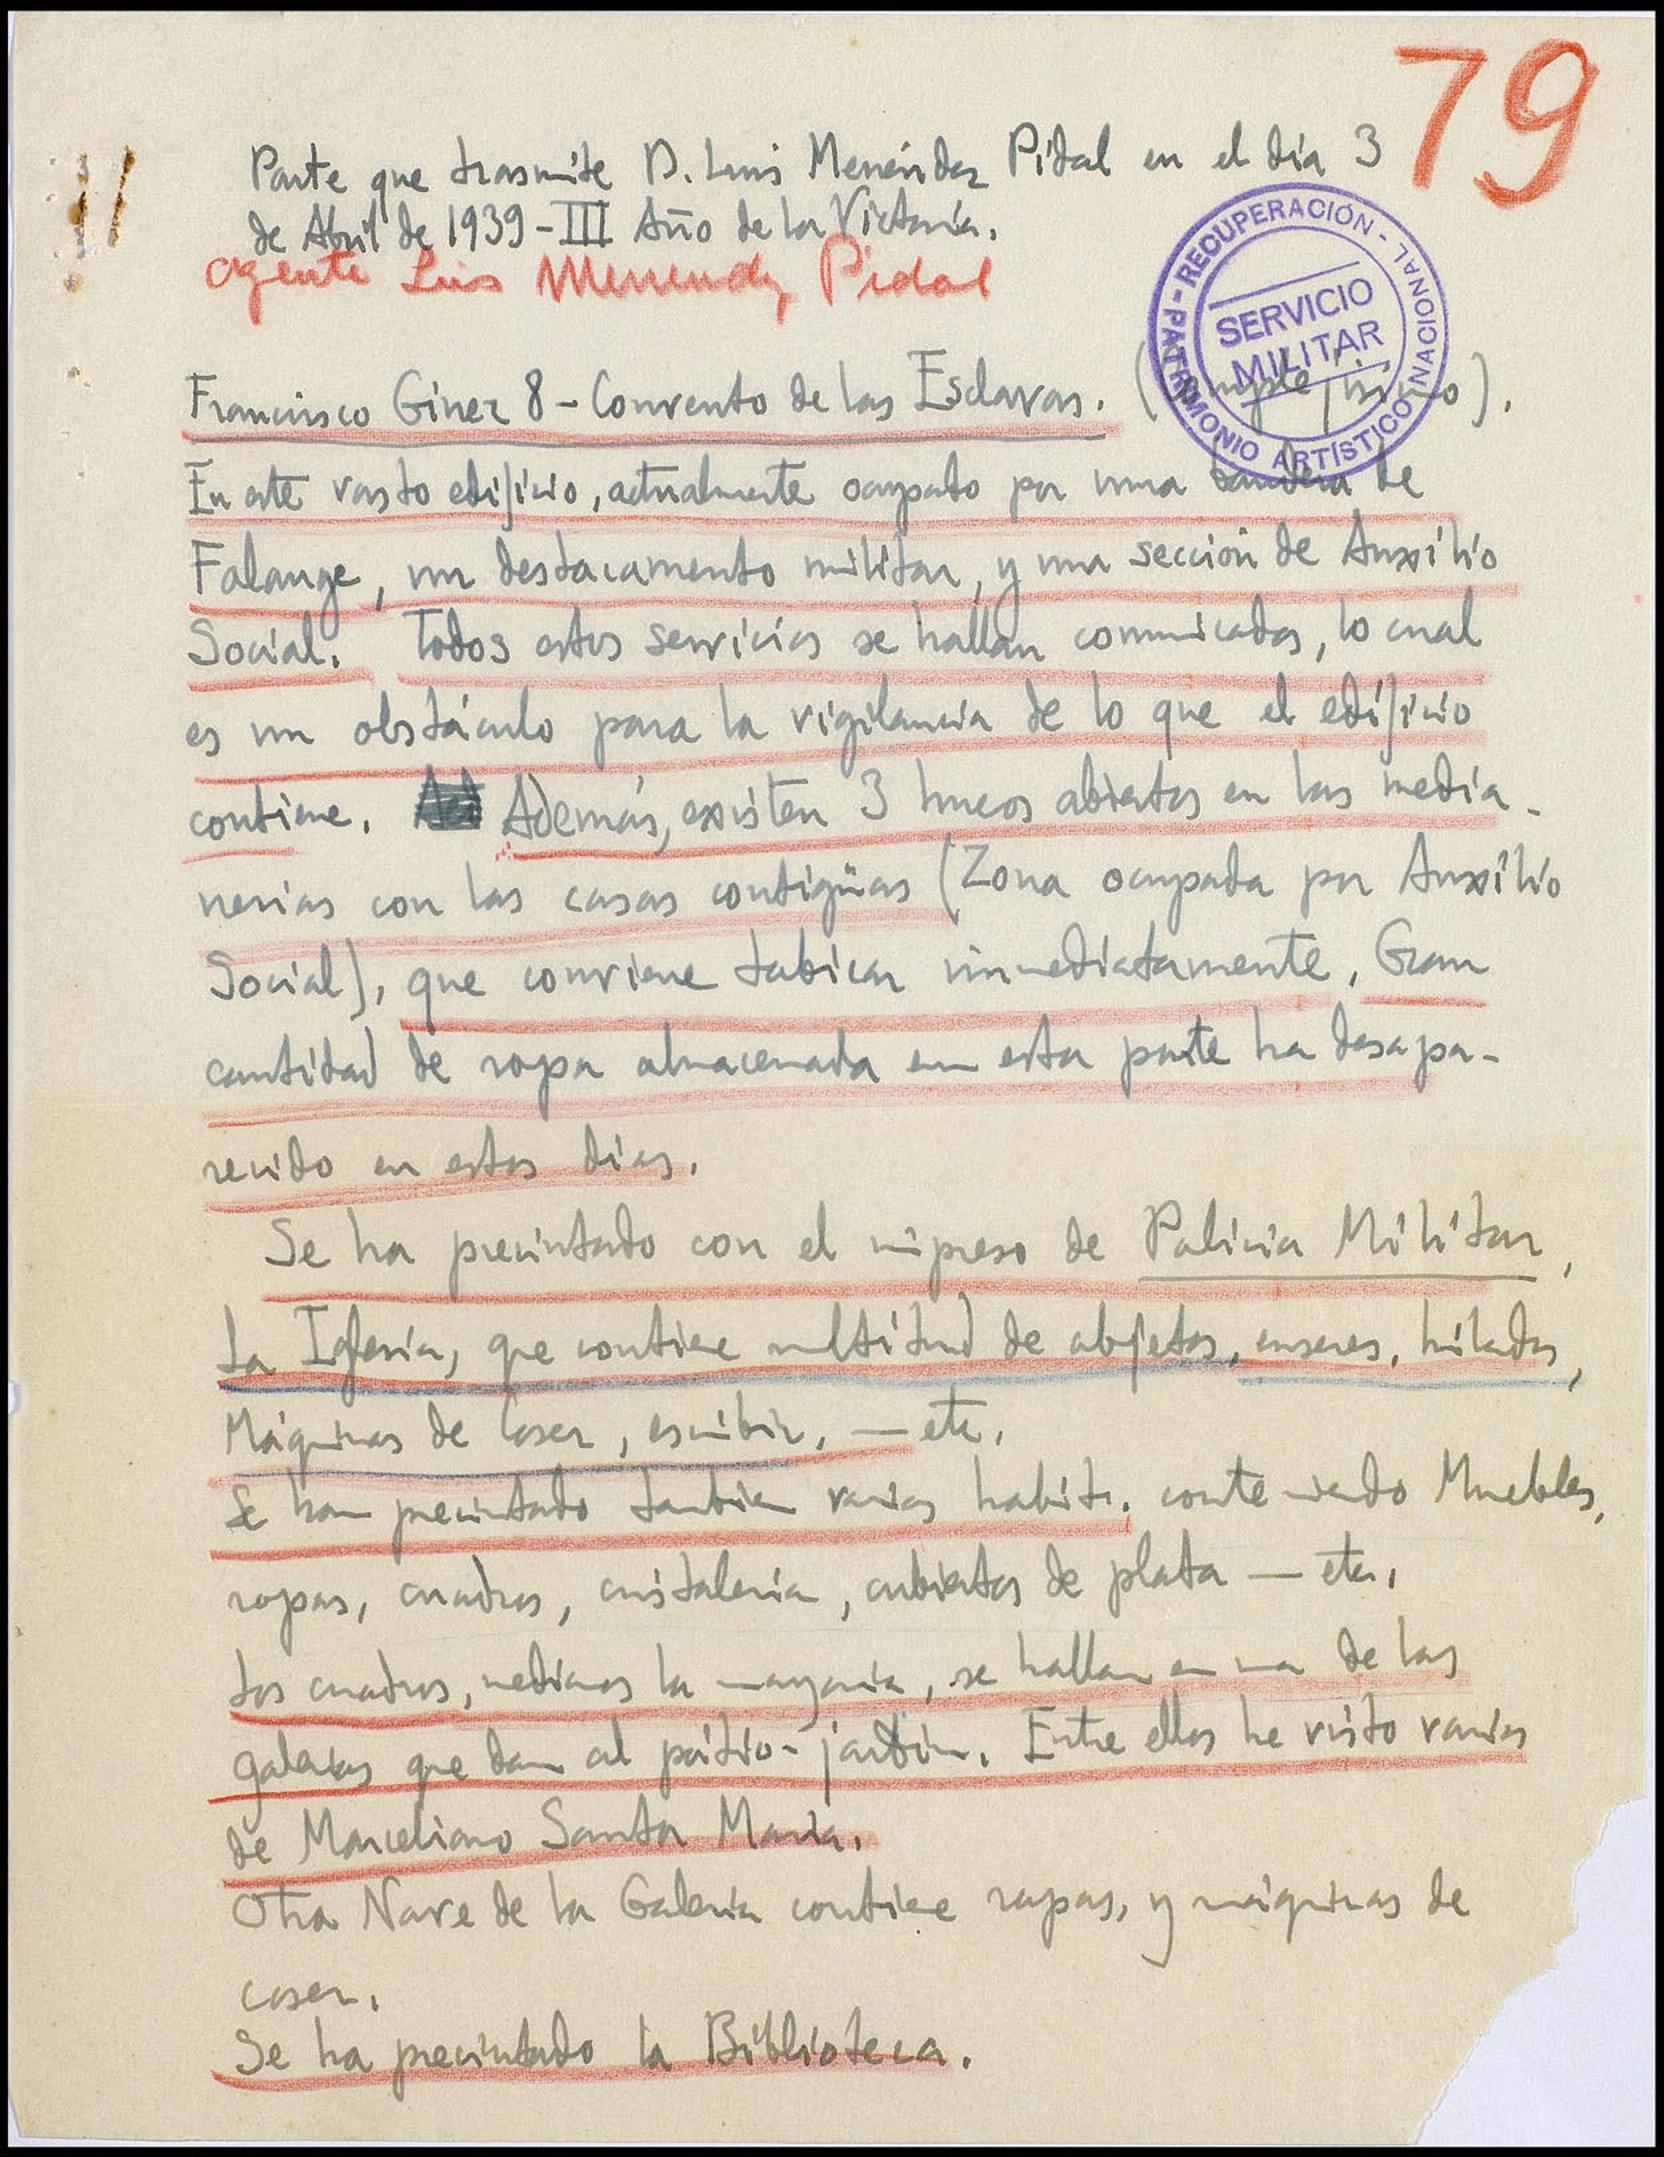 79
Parte que trasmite D. Luis Menéndez Pidal en el día 3
de Abril de 1939 - III Año de la Victoria.
Agente Luis Menendez Pidal
RECUPERACIÓN - PATRIMONIO ARTÍSTICO NACIONAL -
SERVICIO
MILITAR
Francisco Giner 8 - Convento de las Esclavas.
En este vasto edificio, actualmente ocupado por una bandera de
Falange, un destacamento militar, y una sección de Auxilio
Social. Todos estos servicios se hallan comunicados, lo cual
es un obstáculo para la vigilancia de lo que el edificio
contiene. Además, existen 3 huecos abiertos en las media-
nerias con las casas contigüas (Zona ocupada por Auxilio
Social), que conviene tabicar inmediatamente. Gran
cantidad de ropa almacenada en esta parte ha desapa-
recido en estos días.
Se ha precintado con el impreso de Policia Militar,
La Iglesia, que contiene multitud de objetos, enseres, hilados,
Máquinas de Coser, escribir, — etc.
Se han precintado tambien varias habits. conteniendo Muebles,
ropas, cuadros, cristaleria, cubiertos de plata — etc.
Los cuadros, medianos la mayoria, se hallan en una de las
galerias que dan al pátio-jardín. Entre ellos he visto varios
de Marceliano Santa Maria.
Otra Nave de la Galeria contiene ropas, y máquinas de
coser.
Se ha precintado la Biblioteca.